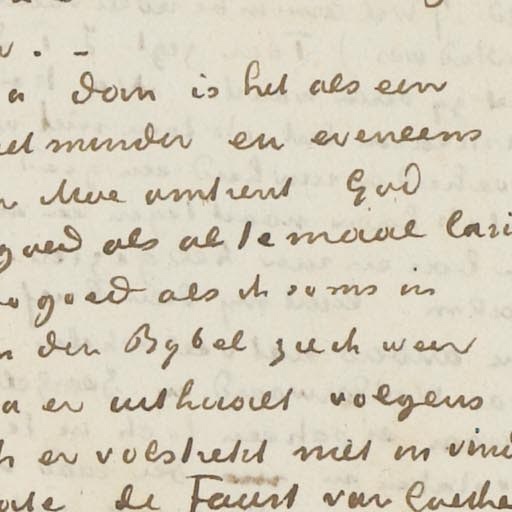 a dom is het als een
minder en eveneens
Moe omtrent God
goed als al te maal lari
zo goed als ik soms in
den Bybel zich weer
a er uithaalt volgens
er volstrekt niet in vin
de Faust van Goethe